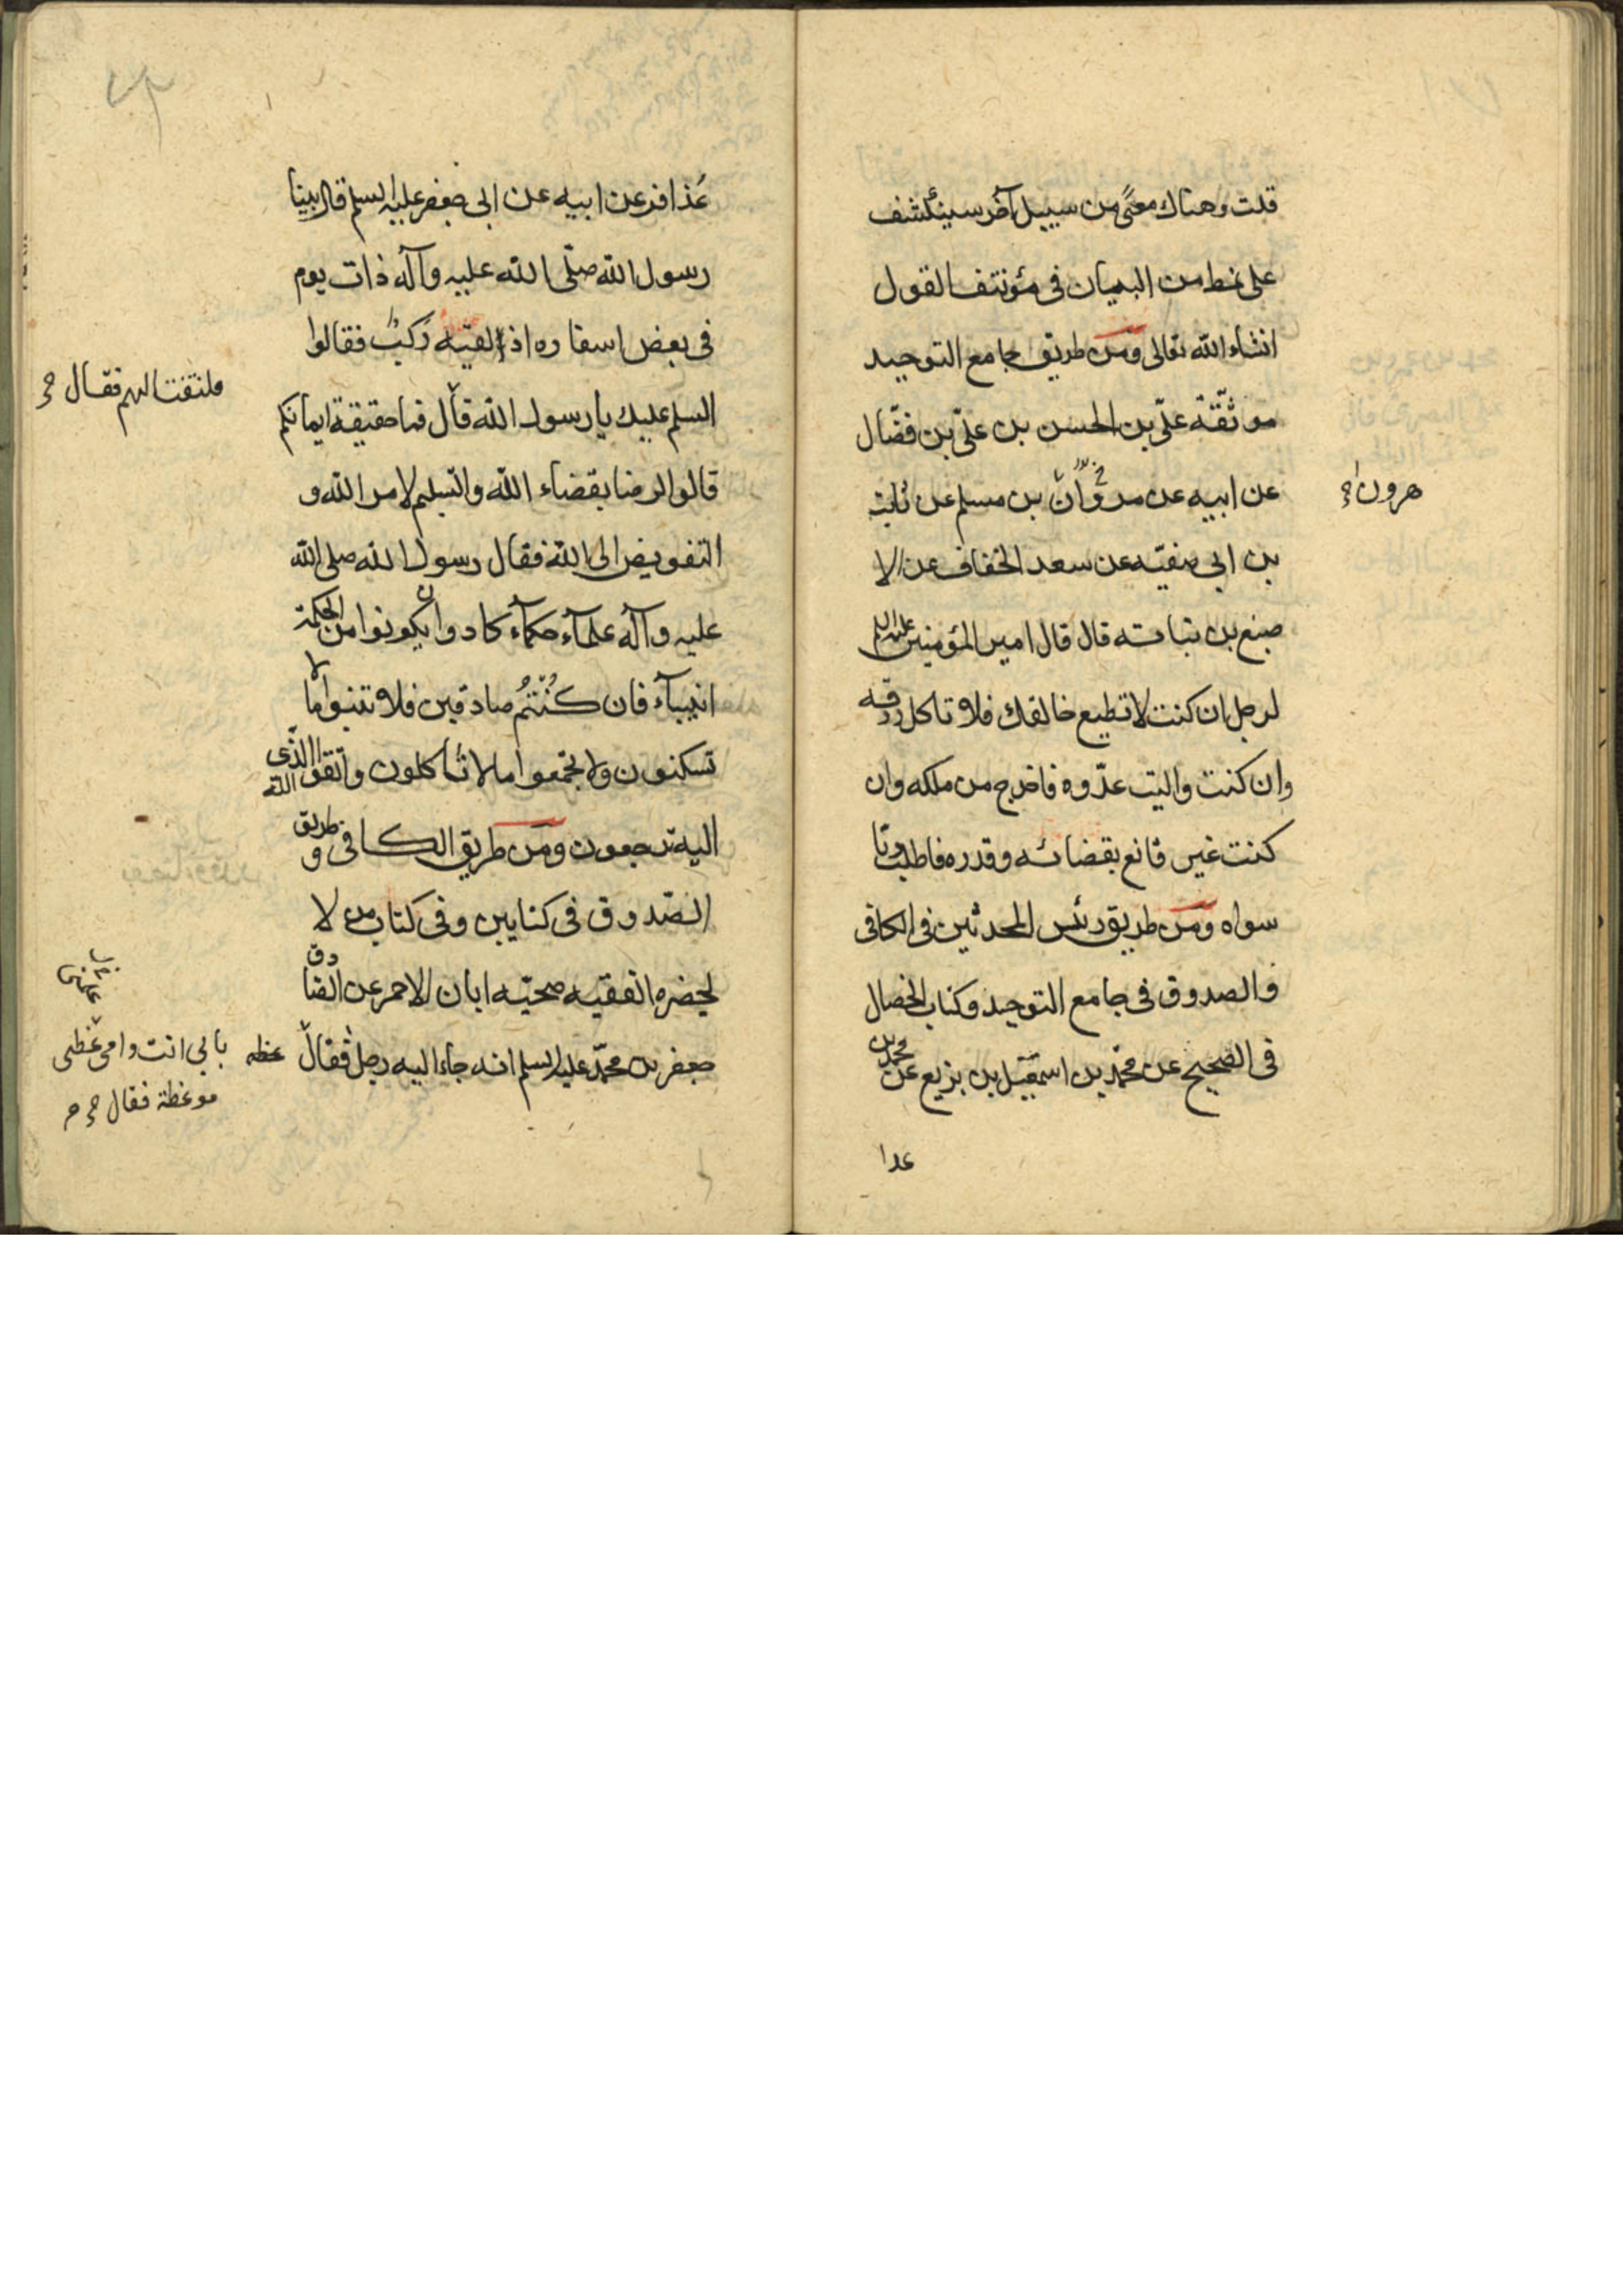 قلت وهناك معنًى من سبيل آخر سينكشف
على نمط من البيان فى مؤتنف القول
انشاء الله تعالى ومن طريق جامع التوحيد
موثّقة علىّ بن الحسن بن علىّ بن فضّال
عن ابيه عن مروان بن مسلم عن ثابت
هرون
بن ابى صفيّه عن سعد الخفاف عن الا
صبغ بن نباته قال قال امير المؤمنين عليه السلم
لرجل ان كنت لا تطيع خالقك فلا تاكل رزقه
وان كنت واليت عدّوه فاخرج من ملكه وان
كنت غير قانع بقضائه وقدره فاطلب ربّا
سواه ومن طريق رئس المحدثين فى الكافى
والصدوق فى جامع التوحيد وكتاب الخصال
فى الصحيح عن محمّد بن اسمعيل بن بزيع عن محمد بن
عذا
عُذافر عن ابيه عن ابى جعفر عليه السلم قال بينا
رسول الله صلّى الله عليه وآله ذات يوم
فى بعض اسفاره اذ لقيه رَكبٌ فقالوا
السلم عليك يا رسول الله قال فما حقيقة ايمانكم
فلتفت اليهم فقال
قالوا الرضا بقضاء الله والتسليم لامر الله و
التفويض الى الله فقال رسول الله صلى الله
عليه وآله علمآء حكمآء كادوا ان يكونوا من الحكمة
انبيآء فان كُنتُم صادقين فلا تبنوا ما لا
تسكنون ولا تجمعوا ما لا تأكلون واتقوا الله الذى
اليه ترجعون ومن طريق الكافى و طريق
الصّدوق فى كتابين وفى كتاب من لا
يحضره الفقيه صحيّه ابان الاحمر عن الصادق
جعفر بن محمّد عليه السلم انه جاء اليه رجل فقال
عظه
بابى انت وامى عظنى
موعظة فقال